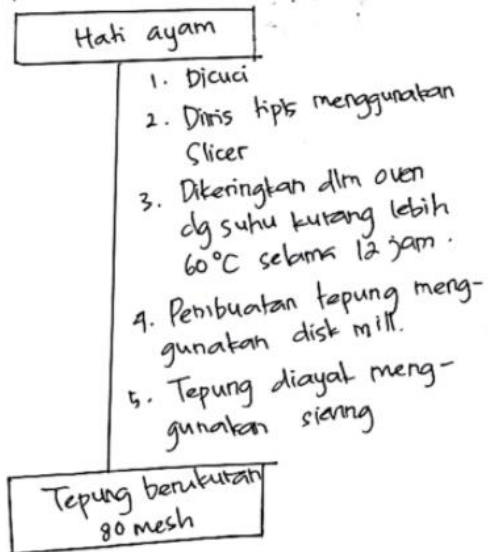 Hati ayam
1. Dicuci
2. Diiris tipis menggunakan
Slicer
3. Dikeringkan dlm oven
dg suhu kurang lebih
60°C selama 12 jam.
4. Pembuatan tepung meng-
gunakan disk mill.
5. Tepung diayak meng-
gunakan
Tepung berukuran
80 mesh